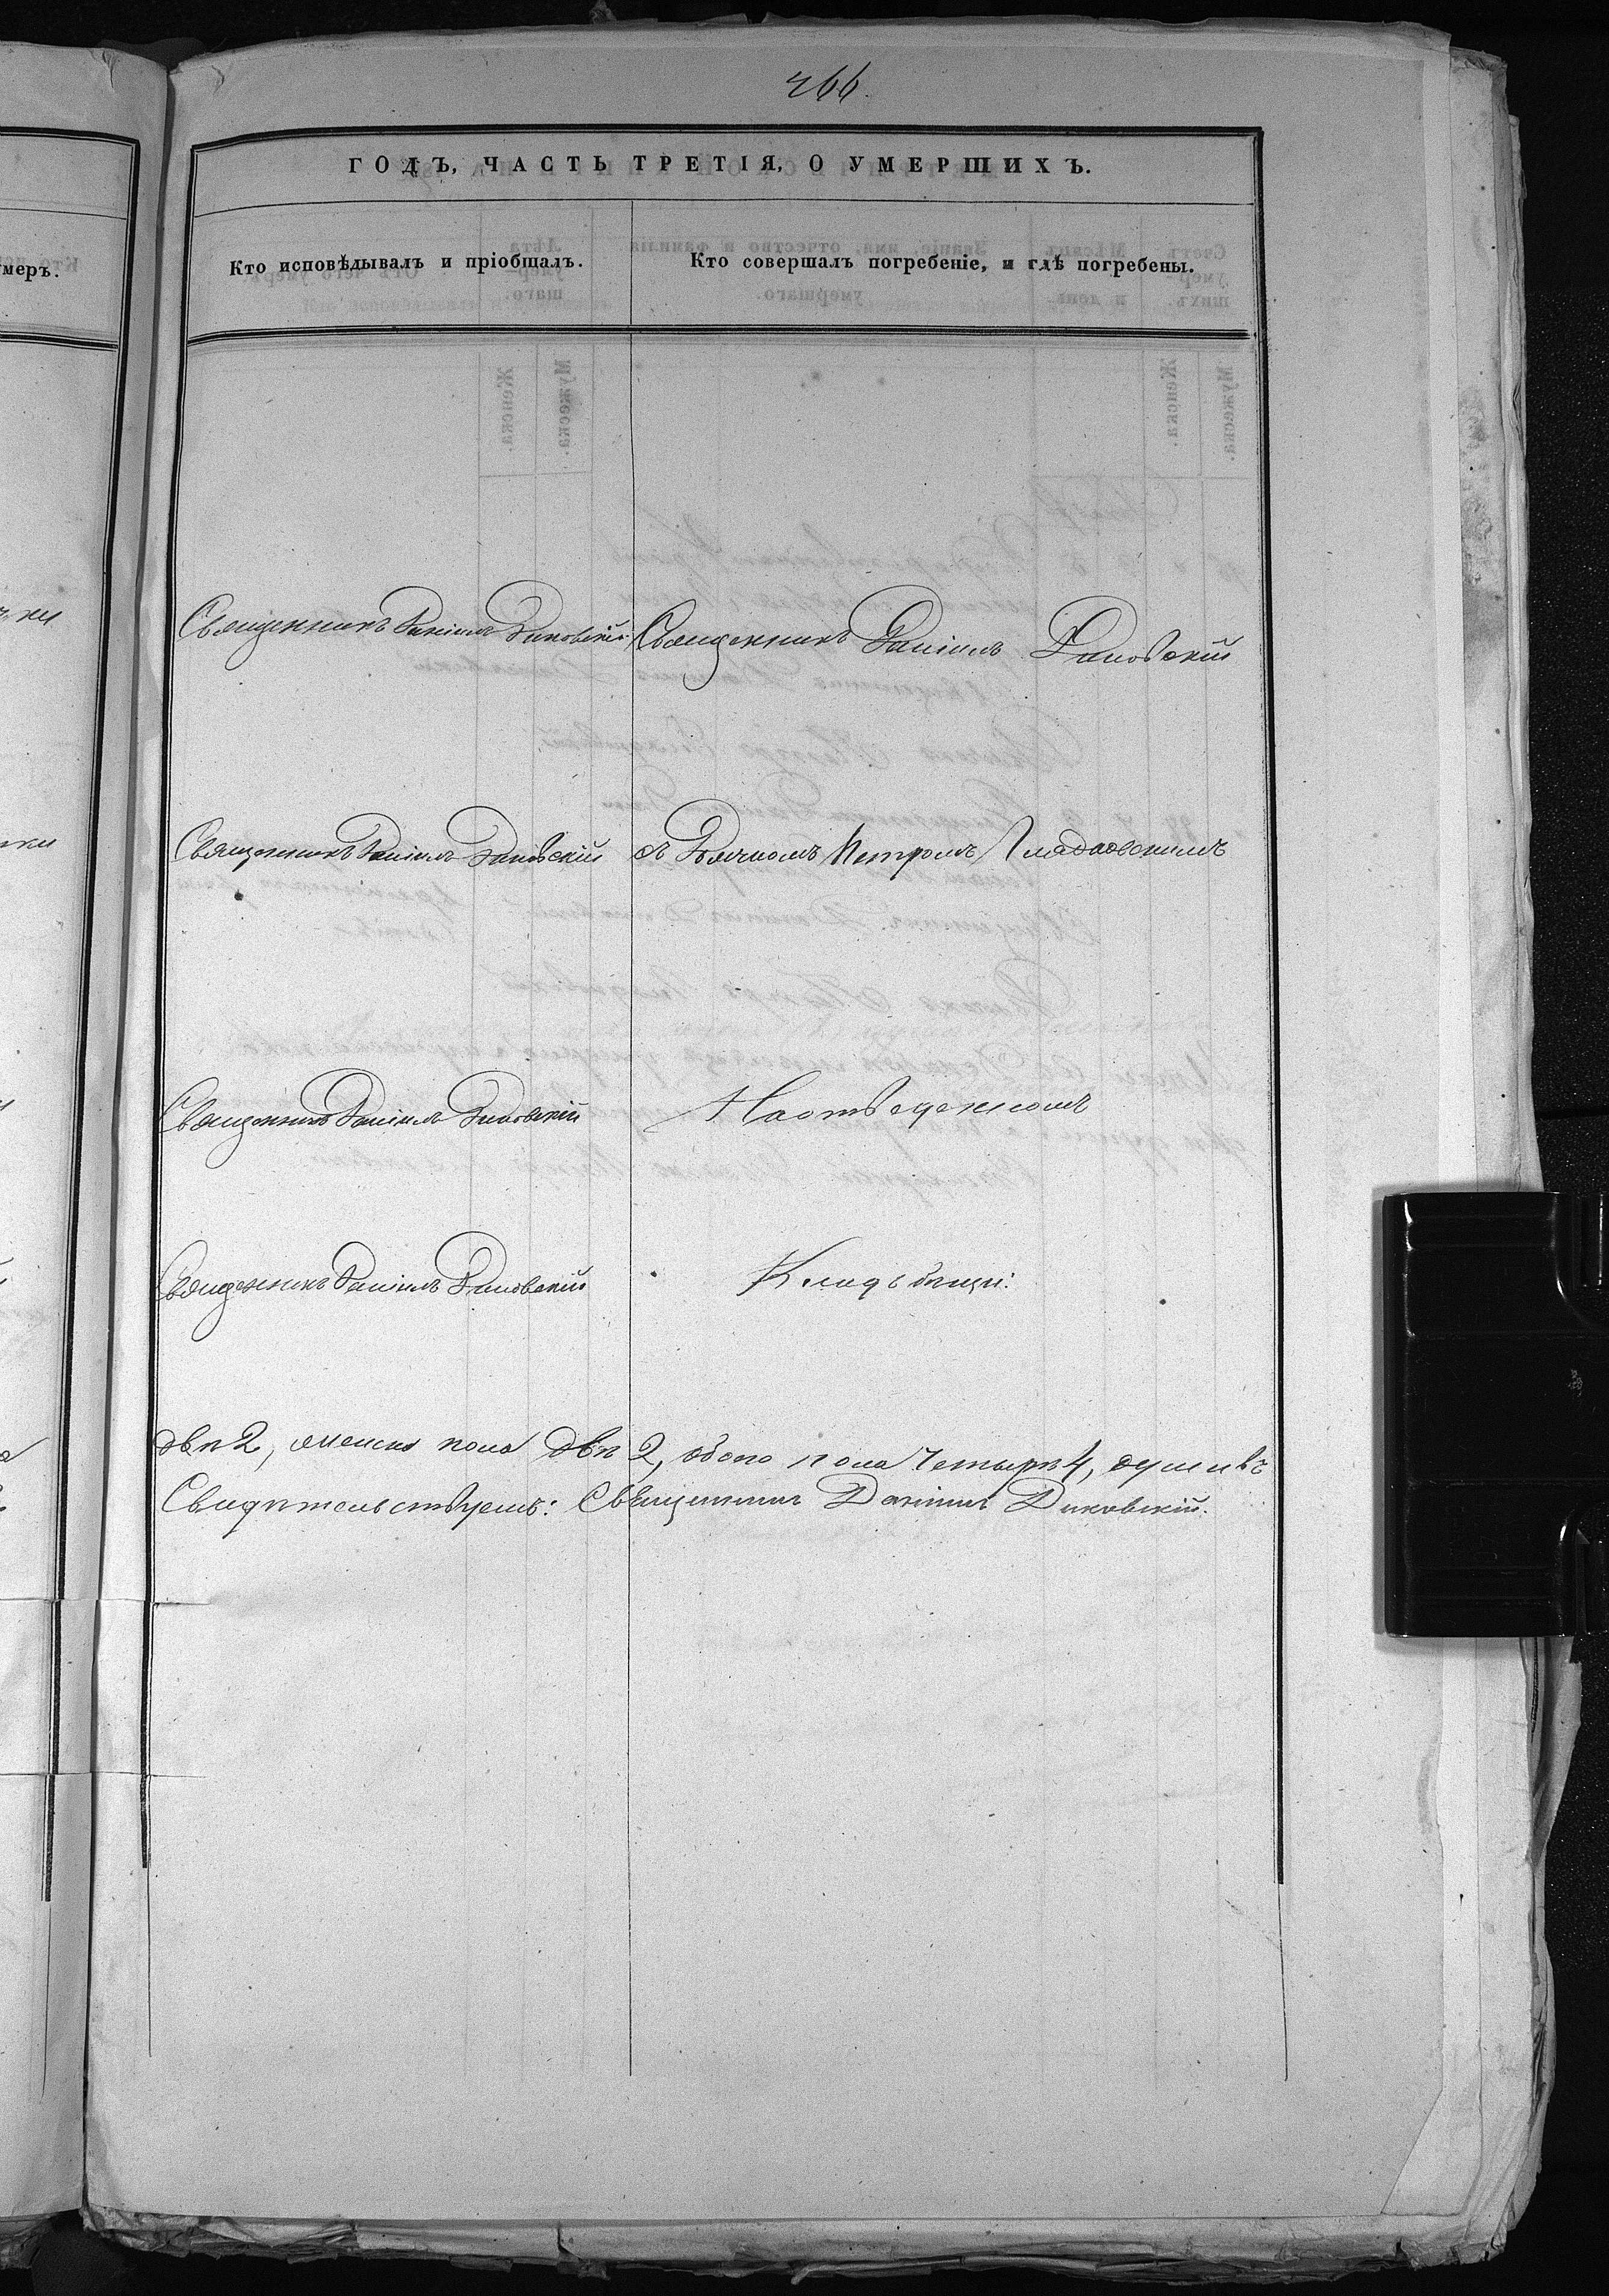 466.
ГОДЪ, ЧАСТЬ ТРЕТІЯ, О УМЕРШИХЪ.
умеръ.
Кто исповѣдывалъ и пріобщалъ.
Кто совершалъ погребеніе, и гдѣ погребены.
Священникъ Даніилъ Диковскій Священникъ Даніилъ Диковскій
Священникъ Даніилъ Диковскій съ Дьячкомъ Петромъ Гладковскимъ
Священникъ Даніилъ Диковскій На отведенномъ
Священникъ Даніилъ Диковскій Кладбищи:
двѣ 2, женска пола двѣ 2, обоего пола четырѣ 4, душивъ
Свидѣтельствуемъ: Священникъ Даніилъ Диковскій.